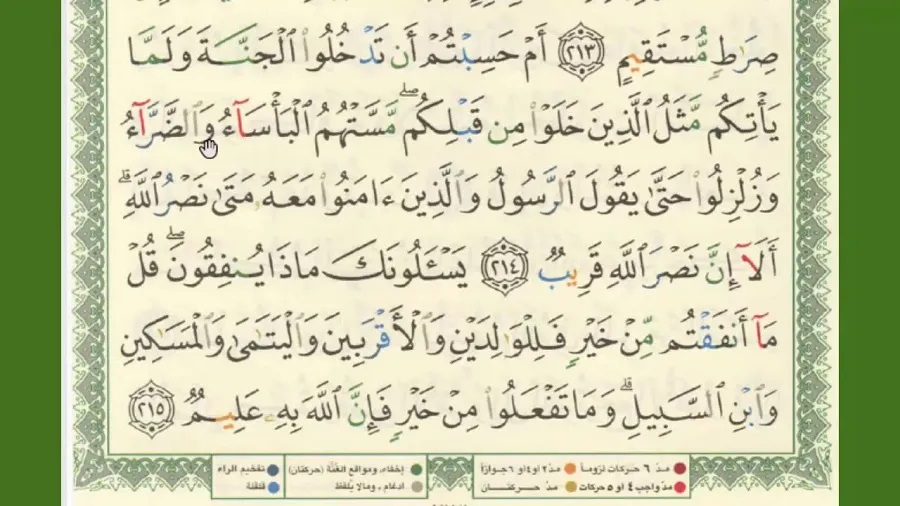 صِرَٰطٖ مُّسۡتَقِيمٍ ٢١٣ أَمۡ حَسِبۡتُمۡ أَن تَدۡخُلُواْ ٱلۡجَنَّةَ وَلَمَّا
يَأۡتِكُم مَّثَلُ ٱلَّذِينَ خَلَوۡاْ مِن قَبۡلِكُمۖ مَّسَّتۡهُمُ ٱلۡبَأۡسَآءُ وَٱلضَّرَّآءُ
وَزُلۡزِلُواْ حَتَّىٰ يَقُولَ ٱلرَّسُولُ وَٱلَّذِينَ ءَامَنُواْ مَعَهُۥ مَتَىٰ نَصۡرُ ٱللَّهِۗ
أَلَآ إِنَّ نَصۡرَ ٱللَّهِ قَرِيبٞ ٢١٤ يَسۡـَٔلُونَكَ مَاذَا يُنفِقُونَۖ قُلۡ
مَآ أَنفَقۡتُم مِّنۡ خَيۡرٖ فَلِلۡوَٰلِدَيۡنِ وَٱلۡأَقۡرَبِينَ وَٱلۡيَتَٰمَىٰ وَٱلۡمَسَٰكِينِ
وَٱبۡنِ ٱلسَّبِيلِۗ وَمَا تَفۡعَلُواْ مِنۡ خَيۡرٖ فَإِنَّ ٱللَّهَ بِهِۦ عَلِيمٞ ٢١٥
مدّ ٦ حركات لزوماً مدّ ٢ أو ٤ أو ٦ جوازاً إخفاء، ومواقع الغُنَّة (حركتان) تفخيم الراء
مدّ واجب ٤ أو ٥ حركات مدّ حركتان ادغام، ومالا يُلفظ قلقلة